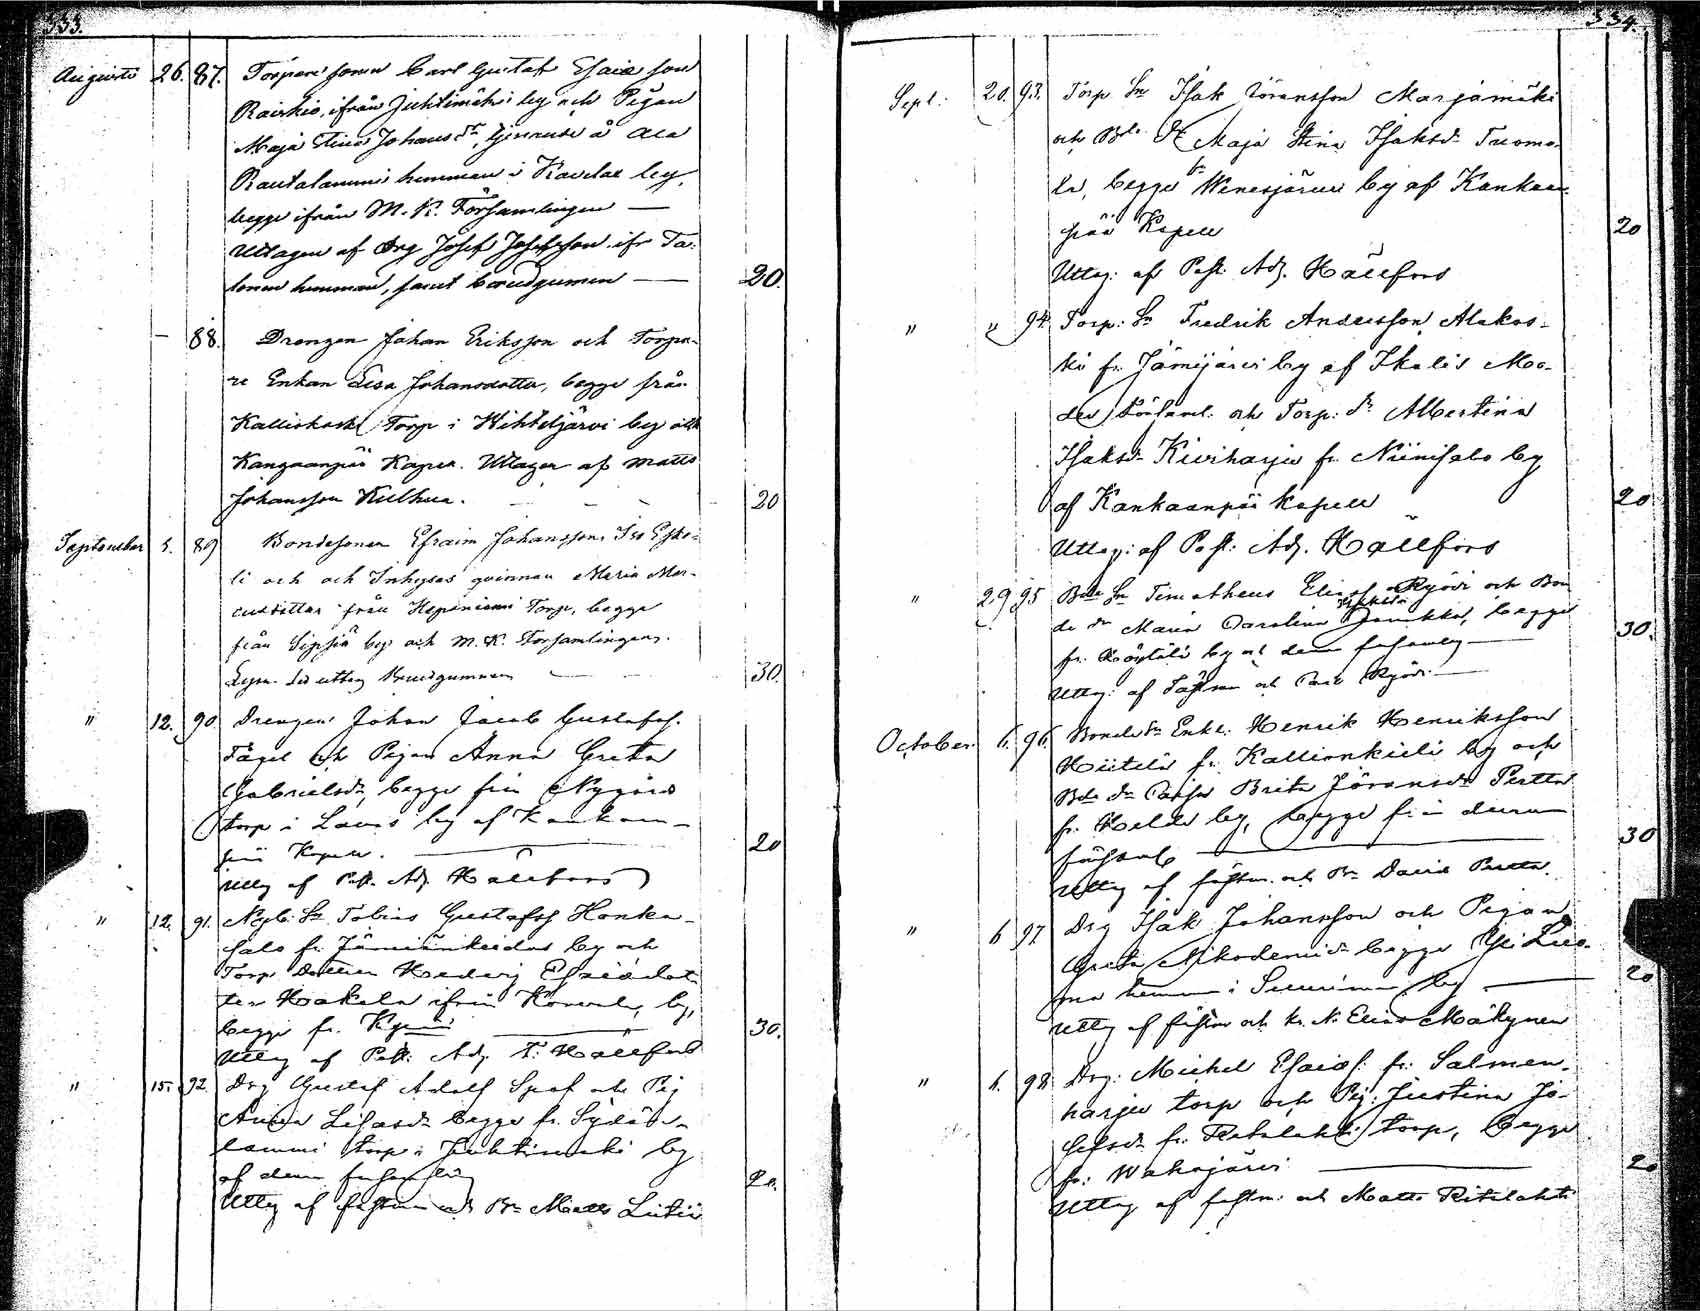 333.
Augusti 26. 87. Torpare sonen Carl Gustaf Esaias son
Raiskio, ifrån Juhtimäki by och Pigan
Maja Stina Johans dr, tjenande å Ala
Rautalammi hemman i Kavelax by,
begge ifrån M. K. Församlingen —
Uttagen af Drg Josef Josefsson ifr Ta-
lonen hemman, samt brudgumen — 20.
— 88. Drengen Johan Eriksson och Torpa-
re Enkan Lisa Johansdotter, begge från
Kalliokoski Torp i Wihteljärvi by
Kangaanpää Kapell. Uttagen af Matts
Johansson Kulhua. — 20
September 5. 89 Bondesonen Efraim Johansson Iso Esko-
li och och Inhyses qvinnan Maria Mar-
cusdotter från Kepiniemi Torp, begge
från Sipsiö by och M. K. Församlingen.
Lysn. Sed. uttog Brudgumnen — 30.
" 12. 90. Drengen Johan Jacob Gustafss.
Fågel och Pigan Anna Greta
Gabrielsdr, begge från Nygård
torp i Lavis by af Kankan-
pää Kapell. — 20
Uttg af Past. Adj. Hällfors
" 12. 91. Nyb. Sn Tobias Gustafss Honka-
salo fr. Jämiänkeidas by och
Torp dotter Hedvig Esaiædot-
ter Kakela ifrån by,
begge fr. — 30.
Uttg af Past. Adj. F. Hällfors
" 15. 92. Drg Gustaf Adolf Spof och Pig
Anna Lisasdr begge fr. Sydän-
lammi torp i Juhtimäki by
af denna församling 20.
Uttg af fästm och Bn Matts Lutio
334.
Sept. 20. 93. Torp Sn Isak Göransson Marjamäki
och Bde Dr Maja Stina Isaksdr Tuomo-
la, begge fr Wenesjärvi by af Kankan-
pää Kapell 20
Uttag: af Past. Adj. Hällfors
" " 94. Torp: Sn Fredrik Andersson Alakos-
ki fr. Jämijärvi by af Ikalis Mo-
der Församl. och Torp: dr Albertina
Isaksdr Kiviharju fr. Niinisalo by
af Kankaanpää Kapell 20
Uttag: af Past. Adj. Hällfors
" 29 95 Bde Sn Timotheus Eliass Ryödi och Bon
de dr Maria Carolina Jannikko, begge
fr. Röytälä by af denna församling — 30.
Uttag: af Fästm och Ryödi —
October. 6. 96. Bonde Sn Enkl: Henrik Henriksson
Hiitelä fr. Kallionkieli by och
Bde Dr Caisa Brita Jöransdr Pertta
fr. Heldo by, begge från denna
församl — 30
Uttg af fästm. och Bn David Pertta.
" 6 97 Drg Isak Johansson och Pigan
Greta Nikodemidr begge Yli Luo-
ma hemman i Suurimaa by. — 20
Uttg af fästm och Kr. N. Elias Mäkynen
" 6. 98. Drg: Michel Esaiass: fr. Salmen-
harju torp och Pig. Justina Jo-
sefsdr fr. Ritalahti torp, begge
fr: Wahojärvi — 20
Uttag af fästm: och Matts Ritalahti